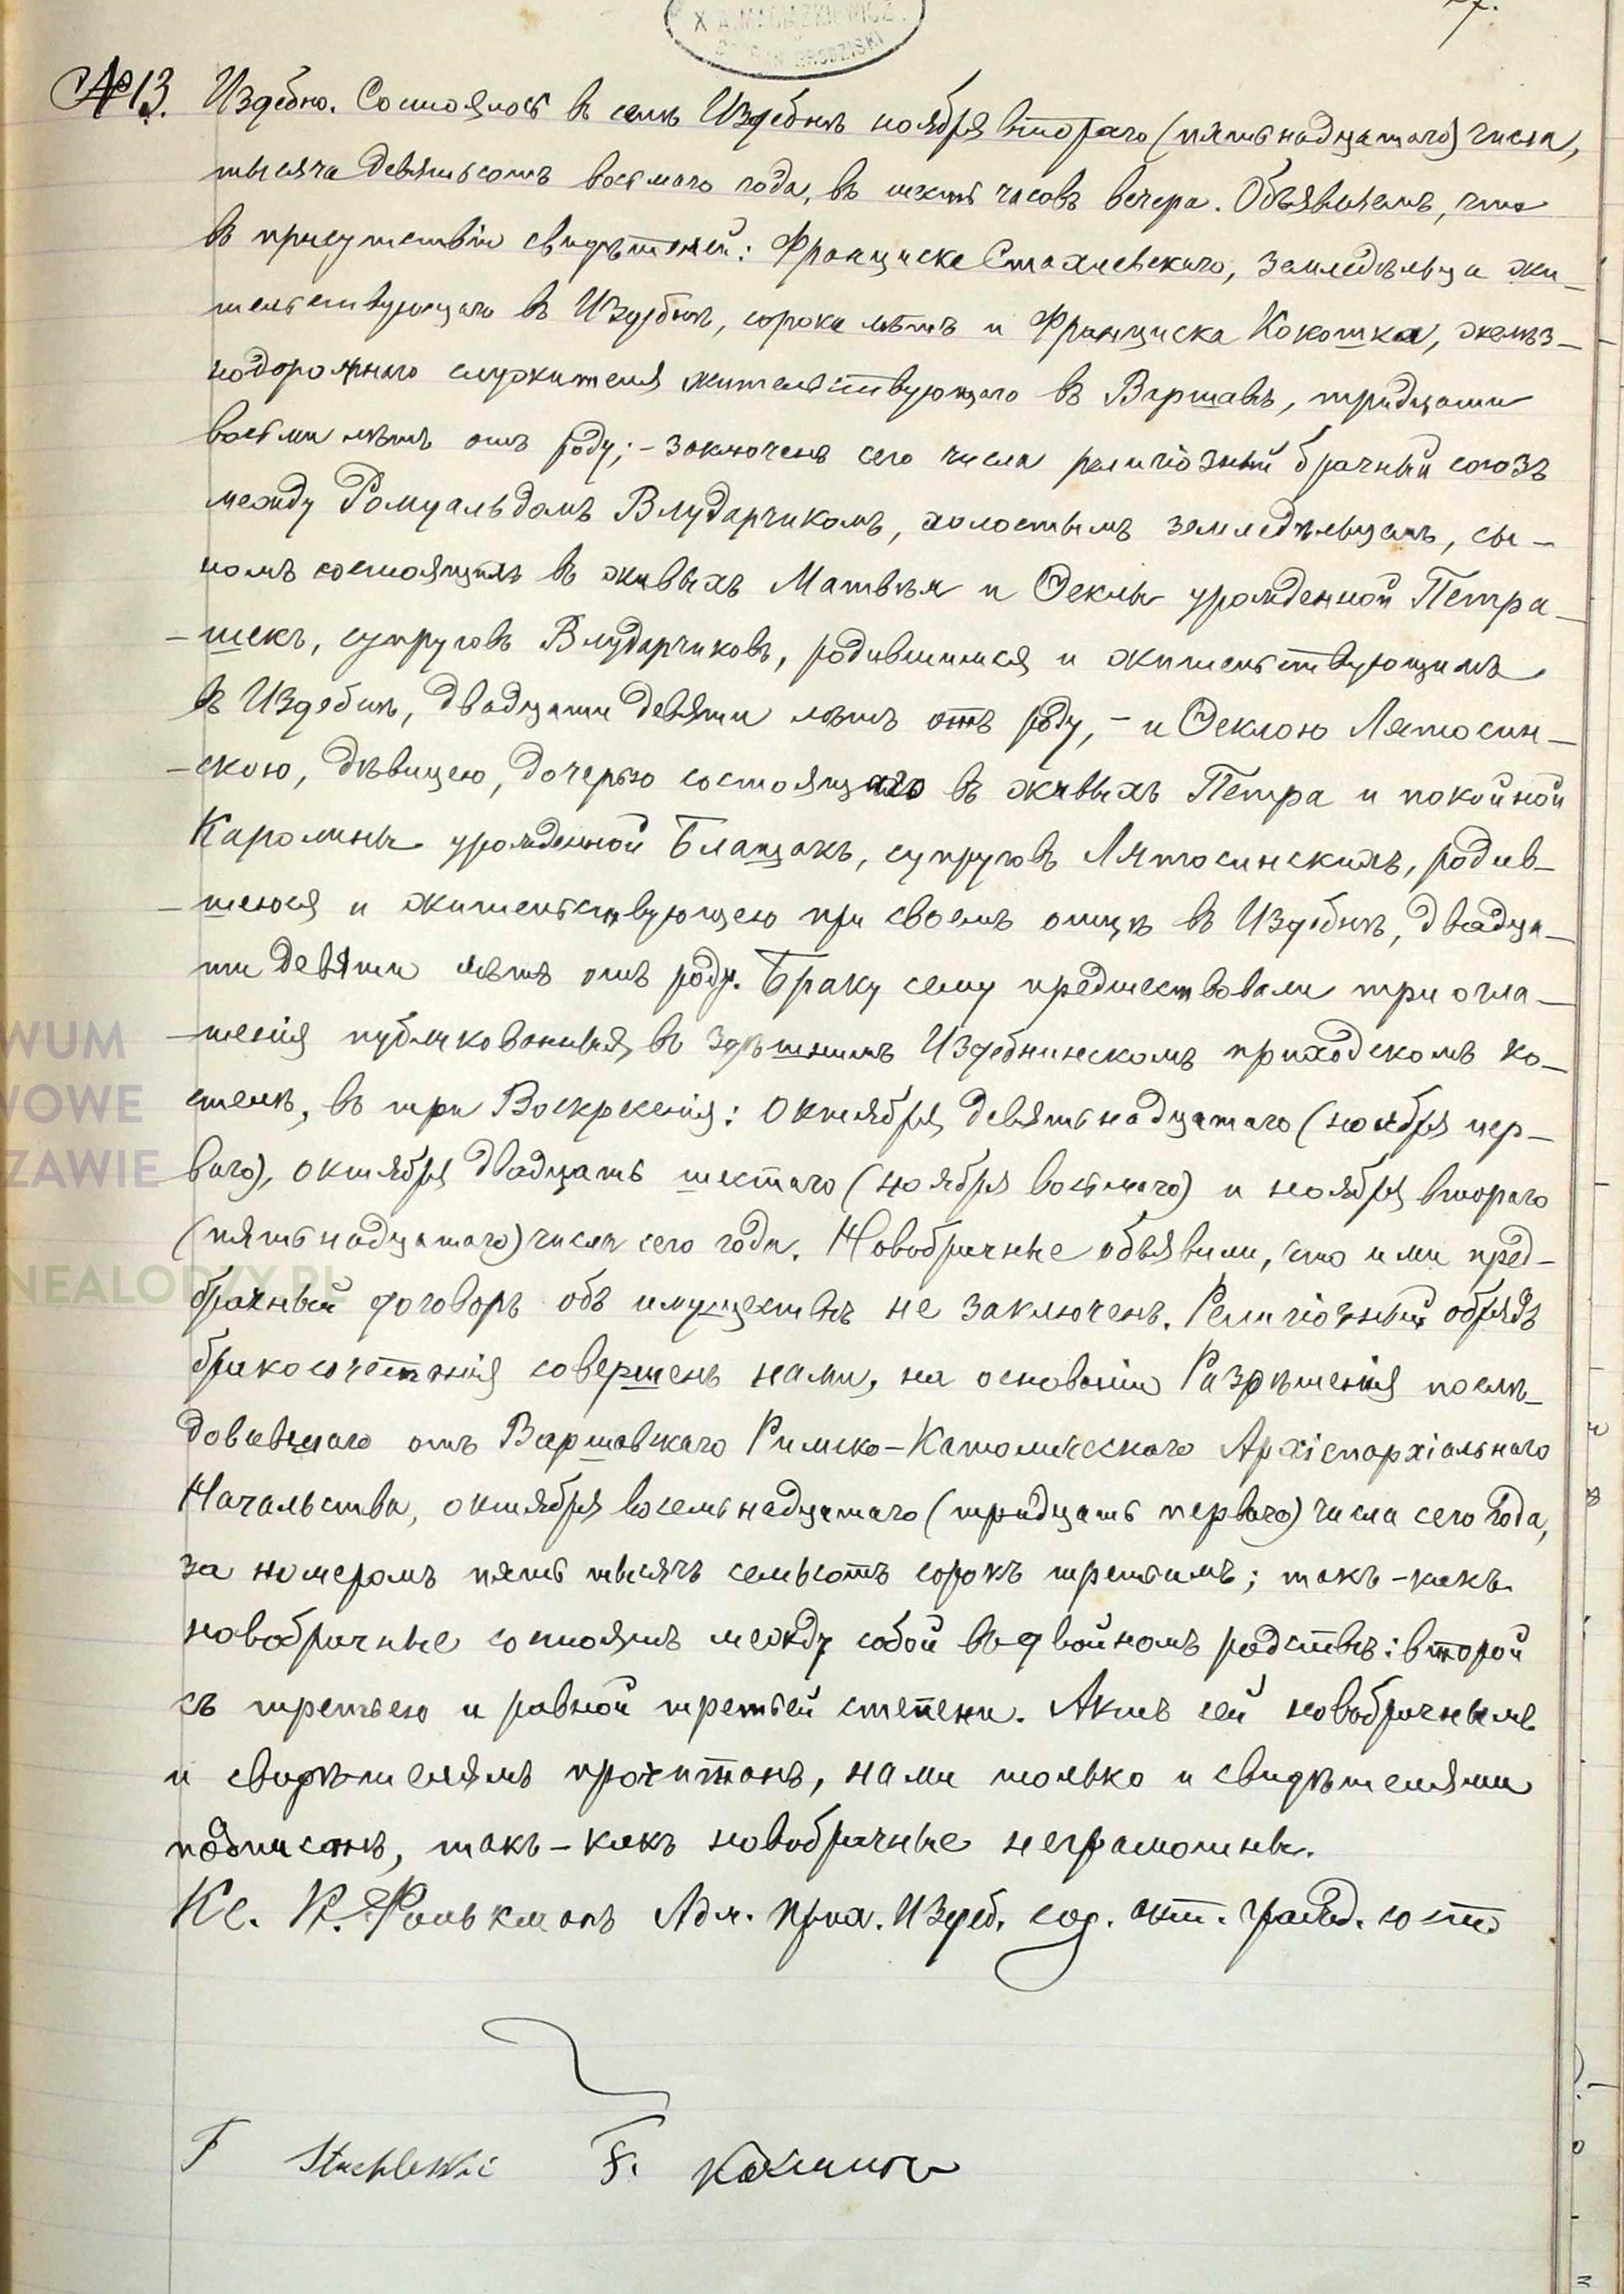 X A. MACIASZKIEWICZ
7.
№ 13. Издебно. Состоялось в селѣ Издебнѣ ноября втораго (пятьнадцатаго) числа,
тысяча девятьсотъ восьмаго года, въ шесть часовъ вечера. Объявляемъ, что
въ присутствіи свидѣтелей: Франциска Стахлевскаго, земледѣльца жи-
тельствующаго въ Издебнѣ, сорока лѣтъ и Франциска Кокошка, желѣз-
нодорожнаго служителя жительствующаго въ Варшавѣ, тридцати
восьми лѣтъ отъ роду; - заключенъ сего числа религіозный брачный союзъ
между Ромуальдомъ Влударчикомъ, холостымъ земледѣльцемъ, сы-
номъ состоящихъ въ живыхъ Матвѣя и Ѳеклы урожденной Петра-
-шекъ, супруговъ Влударчиковъ, родившимся и жительствующимъ
въ Издебнѣ, двадцати девяти лѣтъ отъ роду, - и Ѳеклою Лятосин-
-скою, дѣвицею, дочерью состоящаго въ живыхъ Петра и покойной
Каролины урожденной Блащакъ, супруговъ Лятосинскихъ, родив-
-шеюся и жительствующею при своемъ отцѣ въ Издебнѣ, двадца-
ти девяти лѣтъ отъ роду. Браку сему предшествовали три огла-
-шенія публикованныя въ здѣшнемъ Издебнинскомъ приходскомъ ко-
стелѣ, въ три Воскресенія: октября девятьнадцатаго (ноября пер-
ваго), октября двадцать шестаго (ноября восьмаго) и ноября втораго
(пятьнадцатаго) числа сего года. Новобрачные объявили, что ими пред-
брачный договоръ объ имуществѣ не заключенъ. Религіозный обрядъ
бракосочетанія совершенъ нами, на основаніи Разрѣшенія послѣ-
довавшаго отъ Варшавскаго Римско-Католическаго Архіепархіальнаго
Начальства, октября восемьнадцатаго (тридцать перваго) числа сего года,
за номеромъ пять тысячъ семьсотъ сорокъ третьимъ; такъ-какъ
новобрачные состоятъ между собой въ двойномъ родствѣ: второй
съ третьею и равной третьей степени. Актъ сей новобрачнымъ
и свидѣтелямъ прочитанъ, нами только и свидѣтелями
подписанъ, такъ-какъ новобрачные неграмотны.
Кс. К. Фолькманъ Адм. прих. Издеб. сод. акт. гражд. сост
F Stachlewski F. Kokoszka
WUM
WOWE
ZAWIE
NEALODZY.PL